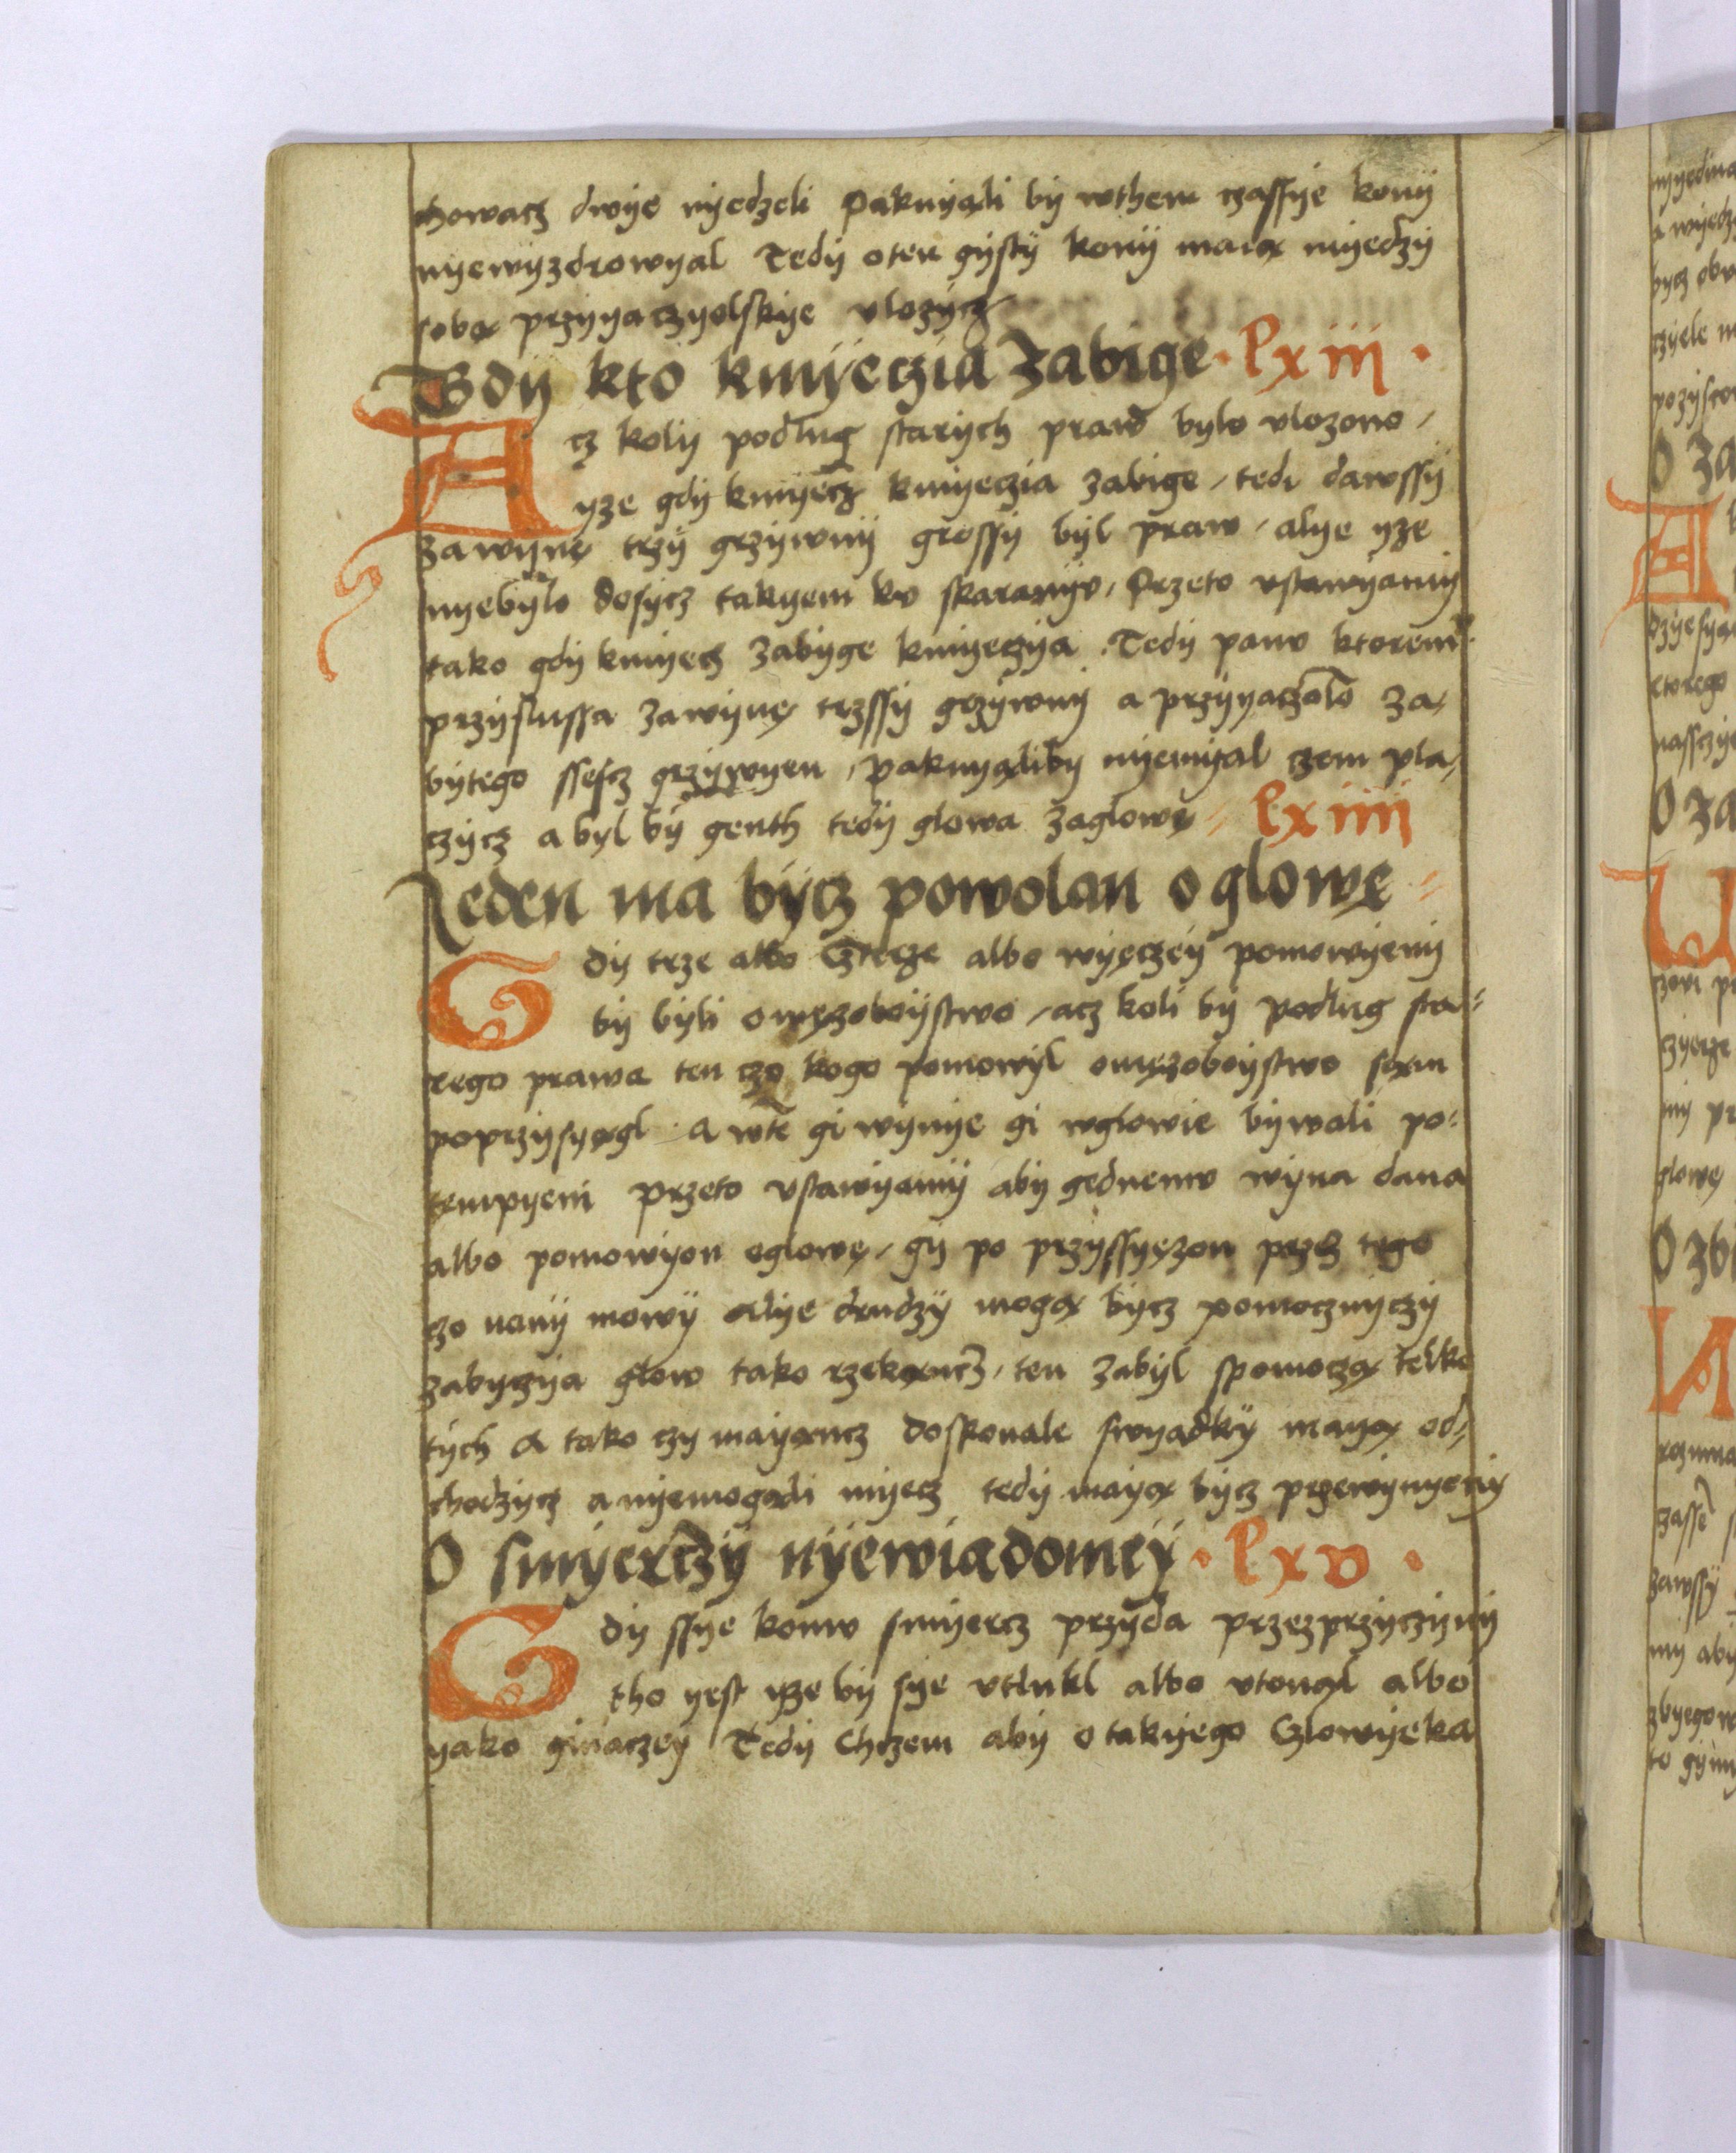 chowacz dwye nyedzeli Paknyąli by wthem czassye kony
nyewyzdrowyal Tedy oten gysty kony maią myedzy
sobą przyyaczyelskye vlozycz
Gdy kto kmyeczia zabige · lxiii ·
Acz koly podlug starych praw bylo vlozono /
yze gdy kmyecz kmyeczia zabige / tedi dawssy
zawynę trzy grzywny grossy byl praw / alye yze
nyebylo dosycz takyem kv skaranyv / Przeto vstawyamy
tako gdy kmyecz zabyge kmyeczya . Tedy panv ktoremv
przyslussa zawynę trzssy grzywny a przyyaczolo za/
bytego ssescz grzywyen / paknyąliby nyemyal czem pla/
czycz a byl by genth tedy glowa zaglowę lxiiii
Ieden ma bycz powolan o glowę
Gdy trze albo Czterze albo wyęczey pomowyeny
by byli omęzoboystwo / acz koli by podlug sta=
rego prawa ten czo kogo pomowyl omęzoboystwo sąm
poprzysyągl . a wtē gi wynye gi wglowie bywali po=
tempyeni przeto vstawyamy aby gednemv wyna dana
albo pomowyon oglowę / gy po przyssyęzon przez tego
czo nany mowy Alye drudzy mogą bycz pomocznyczy
zabyczya glow tako rzekąncz / ten zabyl spomoczą telko
tych a tako czy mayąncz doskonale swyadky mayą od/
chodzycz a nyemogąli myecz tedy mayą bycz przewynyeny
O smyerczy nyewiadomey · lxv ·
Gdy ssye komv smyercz przyda przezprzyczyny
tho yest yze by sye vtlukl albo vtonąl albo
yako ginaczey Tedy Chczem aby o takyego Czlowyeka